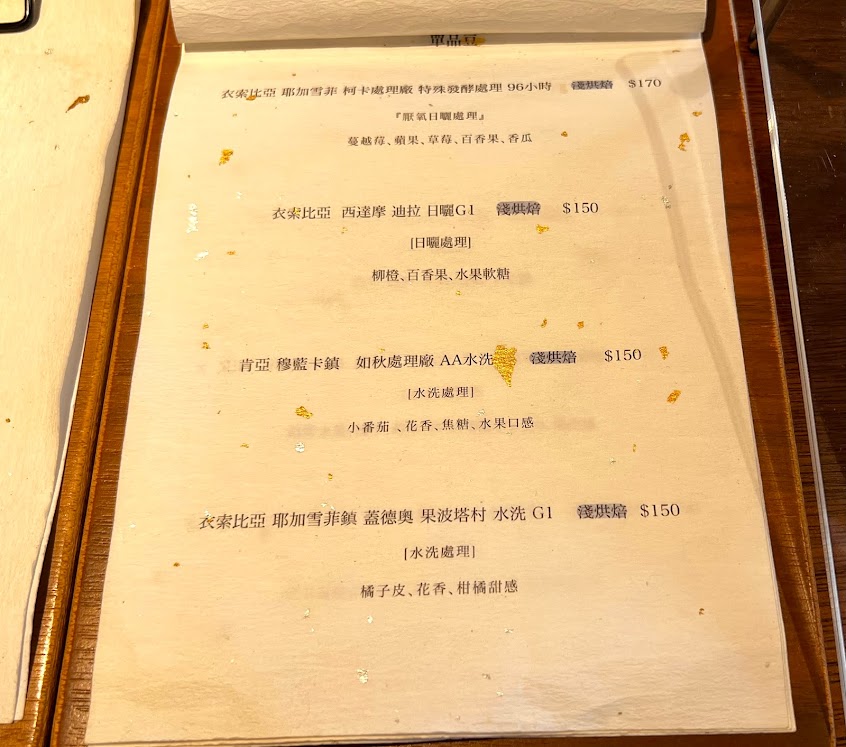 單品豆
衣索比亞 耶加雪菲 柯卡處理廠 特殊發酵處理 96小時 淺烘焙 $170
『厭氧日曬處理』
蔓越莓、蘋果、草莓、百香果、香瓜
衣索比亞 西達摩 迪拉 日曬G1 淺烘焙 $150
[日曬處理]
柳橙、百香果、水果軟糖
肯亞 穆藍卡鎮 如秋處理廠 AA水洗 淺烘焙 $150
[水洗處理]
小番茄、花香、焦糖、水果口感
衣索比亞 耶加雪菲鎮 蓋德奧 果波塔村 水洗 G1 淺烘焙 $150
[水洗處理]
橘子皮、花香、柑橘甜感